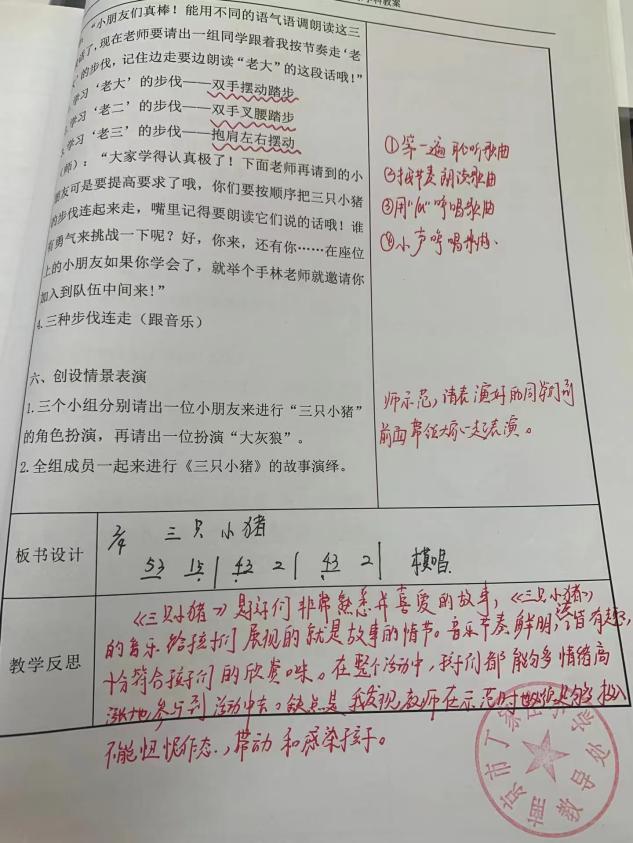 学科教案
“小朋友们真棒！能用不同的语气语调朗读这三
了，现在老师要请出一组同学跟着我按节奏走‘老
’的步伐，记住边走要边朗读“老大”的这段话哦！”
学习‘老大’的步伐——双手摆动踏步
学习‘老二’的步伐——双手叉腰踏步
学习‘老三’的步伐——抱肩左右摆动
（师）：“大家学得认真极了！下面老师再请到的小
朋友可是要提高要求了哦，你们要按顺序把三只小猪
的步伐连起来走，嘴里记得要朗读它们说的话哦！谁
有勇气来挑战一下呢？好，你来，还有你……在座位
上的小朋友如果你学会了，就举个手林老师就邀请你
加入到队伍中间来！”
4.三种步伐连走（跟音乐）
①第一遍 聆听歌曲
②按节奏朗读歌曲
③用“lu”哼唱歌曲
④小声哼唱歌曲、
六、创设情景表演
1.三个小组分别请出一位小朋友来进行“三只小猪”
的角色扮演，再请出一位扮演“大灰狼”。
2.全组成员一起来进行《三只小猪》的故事演绎。
师示范，请表演好的同学们到
前面带领大家一起表演。
板书设计
2/4 三只小猪
53 15 | 43 2 | 43 2 | 模唱
教学反思
《三只小猪》是孩子们非常熟悉并喜爱的故事，《三只小猪》
的音乐给孩子们展现的就是故事的情节。音乐节奏鲜明，诙谐有趣，
十分符合孩子们的欣赏口味。在整个活动中，孩子们都能够多情绪高
涨地参与到活动中去。缺点是我发现教师在示范时必须更加投入
不能忸怩作态，带动和感染孩子。
教导处